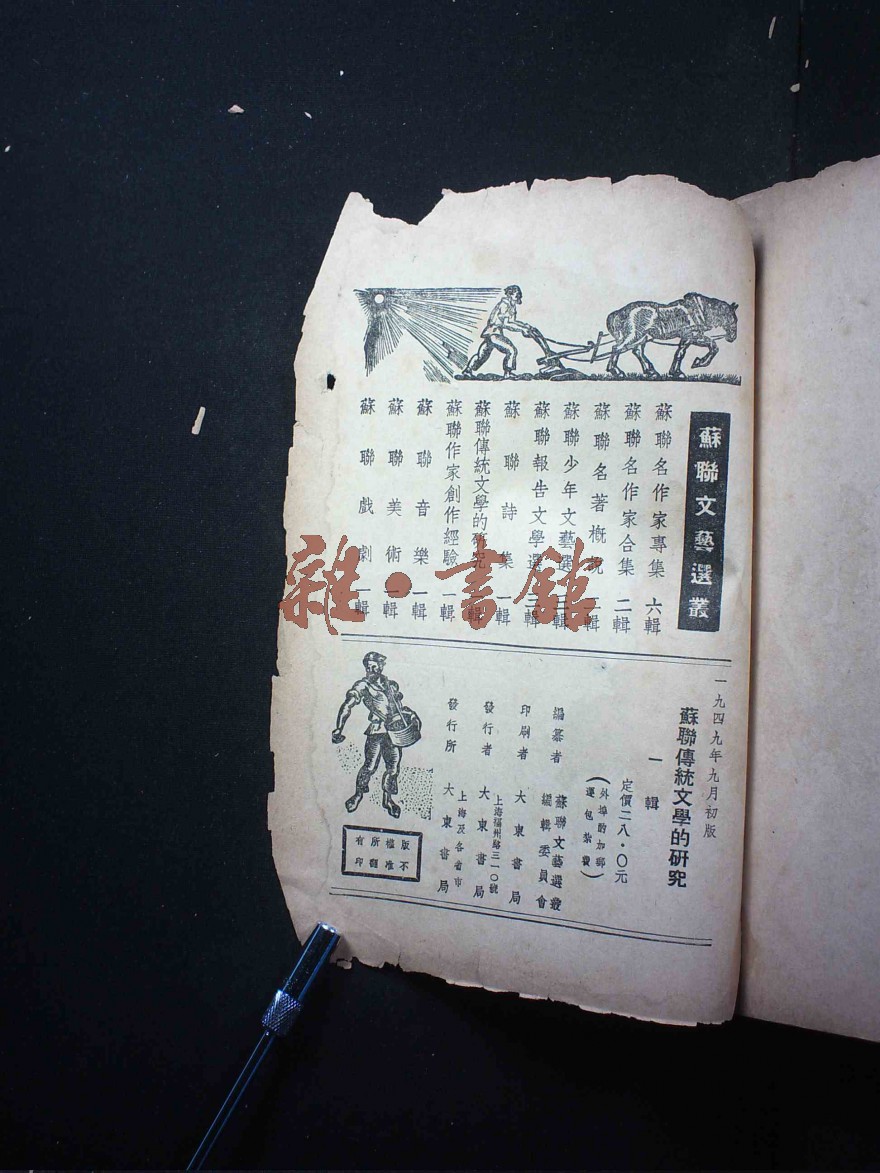 蘇聯文藝選叢
蘇聯名作家專集 六輯
蘇聯名作家合集 二輯
蘇聯名著概說 輯
蘇聯少年文藝選 輯
蘇聯報告文學選 輯
蘇聯詩集 一輯
蘇聯傳統文學的研究 輯
蘇聯作家創作經驗 一輯
蘇聯音樂 一輯
蘇聯美術 一輯
蘇聯戲劇 一輯
一九四九年九月初版
蘇聯傳統文學的研究
一輯
定價二八·〇元
(外埠酌加郵
運包紮費)
編纂者 蘇聯文藝選叢
編輯委員會
印刷者 大東書局
上海福州路三一〇號
發行者 大東書局
上海及各省市
發行所 大東書局
版權所有
不准翻印
雜·書館